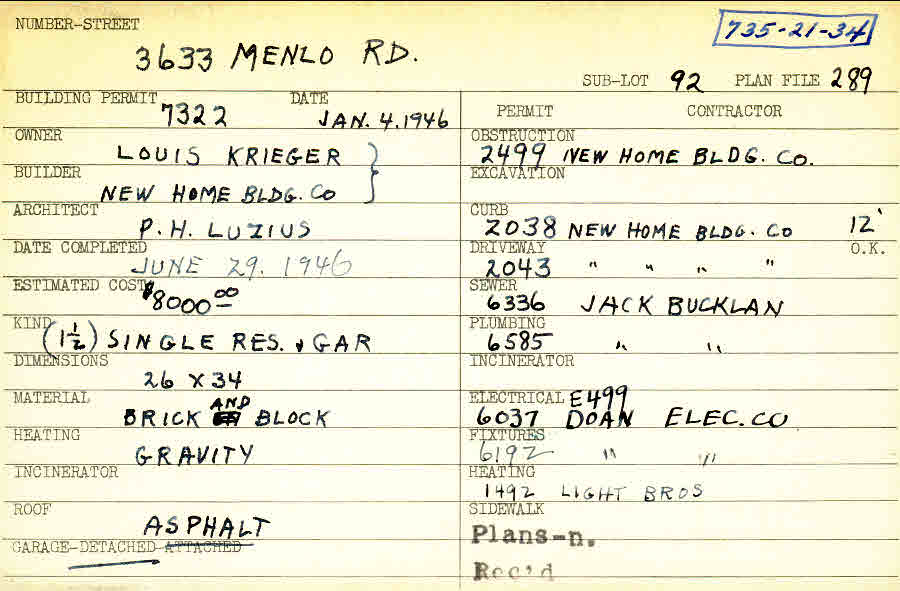 NUMBER-STREET
735-21-34
3633 MENLO RD.
SUB-LOT 92 PLAN FILE 289
BUILDING PERMIT DATE
7322 JAN. 4. 1946
OWNER
LOUIS KRIEGER
BUILDER
NEW HOME BLDG. CO
ARCHITECT
P. H. LUZIUS
DATE COMPLETED
JUNE 29. 1946
ESTIMATED COST
$8000 00
KIND
(1½) SINGLE RES. & GAR
DIMENSIONS
26 X 34
MATERIAL
BRICK AND BLOCK
HEATING
GRAVITY
INCINERATOR
ROOF
ASPHALT
GARAGE-DETACHED-ATTACHED
PERMIT CONTRACTOR
OBSTRUCTION
2499 NEW HOME BLDG. CO.
EXCAVATION
CURB
2038 NEW HOME BLDG. CO 12'
DRIVEWAY O.K.
2043 " " " "
SEWER
6336 JACK BUCKLAN
PLUMBING
6585 " "
INCINERATOR
ELECTRICAL E499
6037 DOAN ELEC. CO
FIXTURES
6192 " "
HEATING
1492 LIGHT BROS
SIDEWALK
Plans-n.
Rec'd